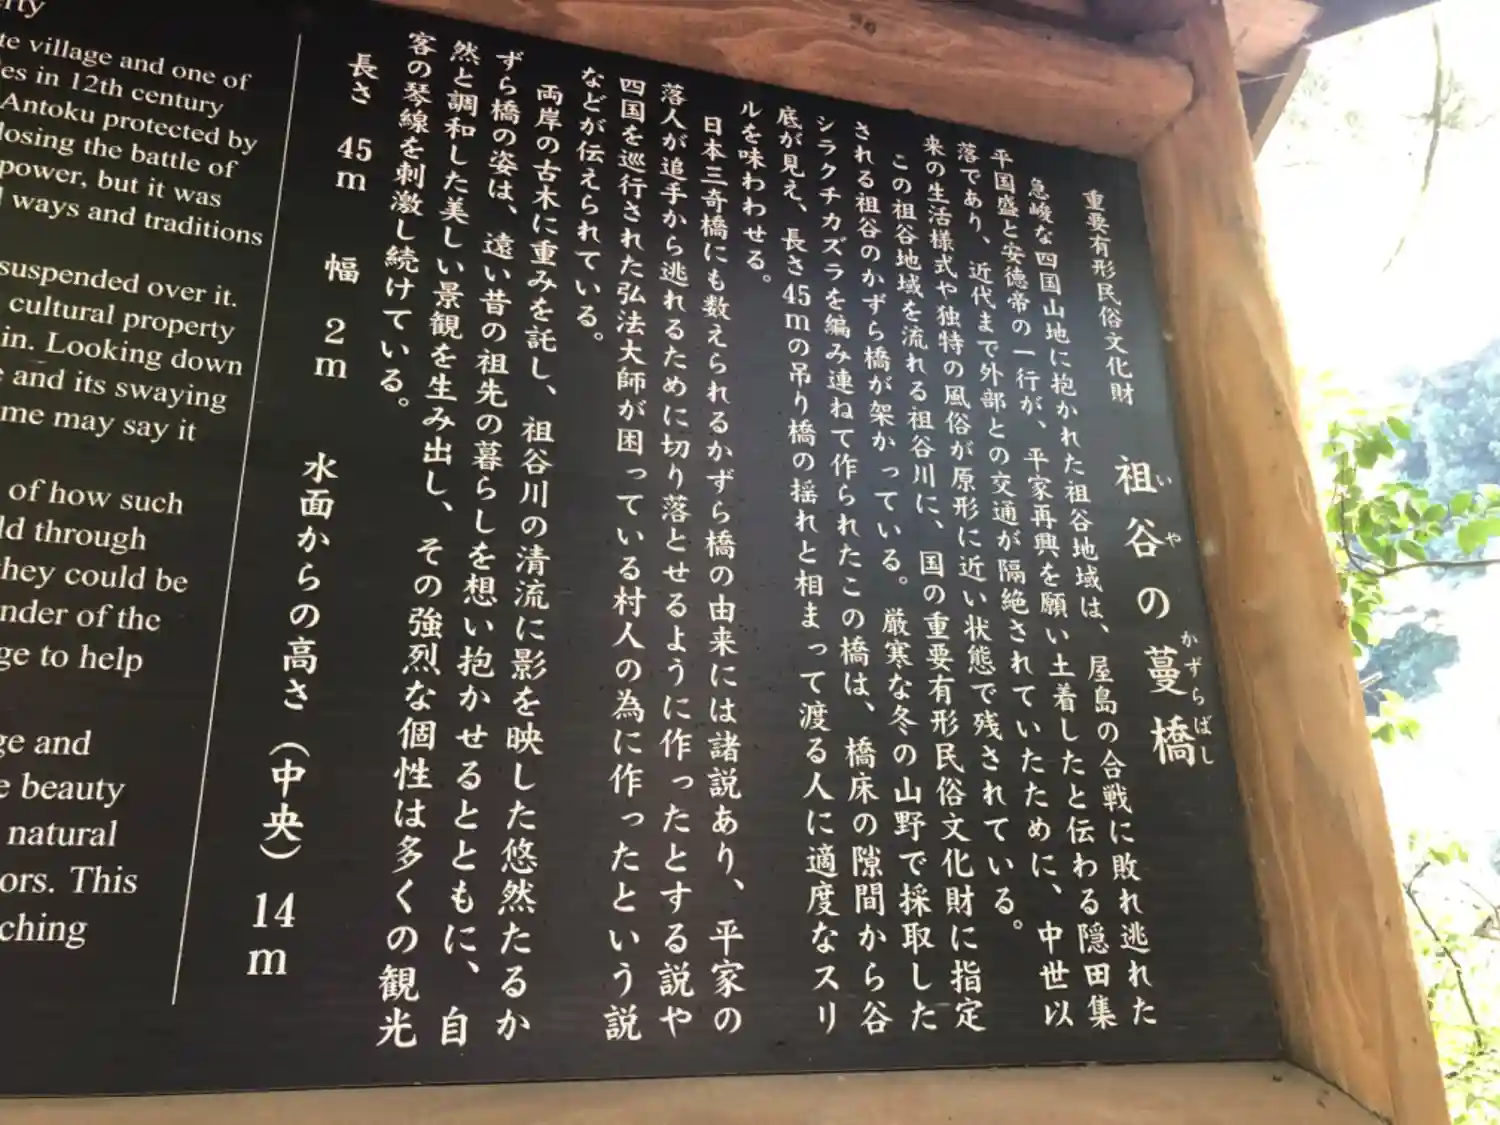 重要有形民俗文化財　祖谷の蔓橋
いや　かずらばし
急峻な四国山地に抱かれた祖谷地域は、屋島の合戦に敗れ逃れた
平国盛と安徳帝の一行が、平家再興を願い土着したと伝わる隠田集
落であり、近代まで外部との交通が隔絶されていたために、中世以
来の生活様式や独特の風俗が原形に近い状態で残されている。
この祖谷地域を流れる祖谷川に、国の重要有形民俗文化財に指定
される祖谷のかずら橋が架かっている。厳寒な冬の山野で採取した
シラクチカズラを編み連ねて作られたこの橋は、橋床の隙間から谷
底が見え、長さ45mの吊り橋の揺れと相まって渡る人に適度なスリ
ルを味わわせる。
日本三奇橋にも数えられるかずら橋の由来には諸説あり、平家の
落人が追手から逃れるために切り落とせるように作ったとする説や
四国を巡行された弘法大師が困っている村人の為に作ったという説
などが伝えられている。
両岸の古木に重みを託し、祖谷川の清流に影を映した悠然たるか
ずら橋の姿は、遠い昔の祖先の暮らしを想い抱かせるとともに、自
然と調和した美しい景観を生み出し、その強烈な個性は多くの観光
客の琴線を刺激し続けている。
長さ　45m　幅　2m　水面からの高さ（中央）14m
village and one of
in 12th century
Antoku protected by
losing the battle of
power, but it was
ways and traditions
suspended over it.
cultural property
in. Looking down
and its swaying
me may say it
of how such
ld through
they could be
nder of the
ge to help
ge and
beauty
natural
ors. This
ching